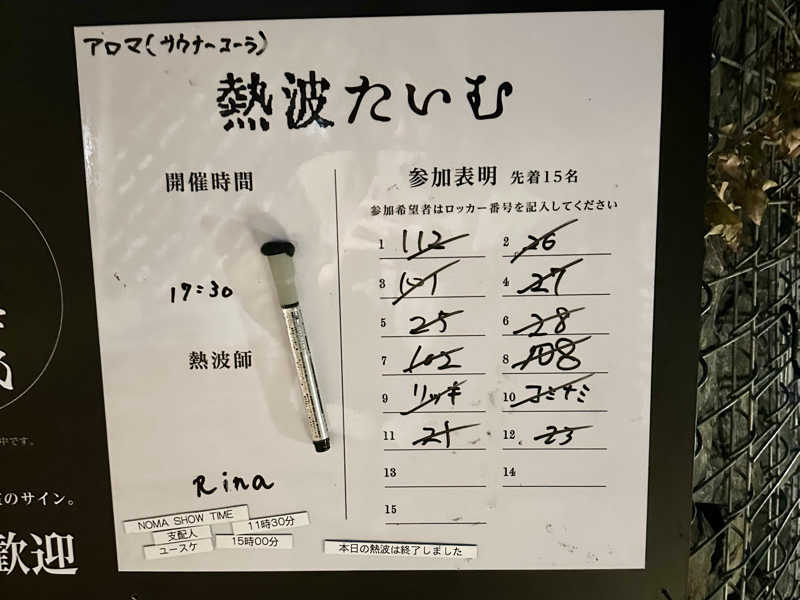 アロマ(サウナーコーラ)
熱波たいむ
開催時間
17:30
熱波師
Rina
参加表明 先着15名
参加希望者はロッカー番号を記入してください
1 112
2 26
3 101
4 27
5 25
6 28
7 102
8 108
9 リッキ
10 コミナミ
11 21
12 23
13
14
15
NOMA SHOW TIME
11時30分
支配人
ユースケ
15時00分
本日の熱波は終了しました
中です。
のサイン。
歓迎